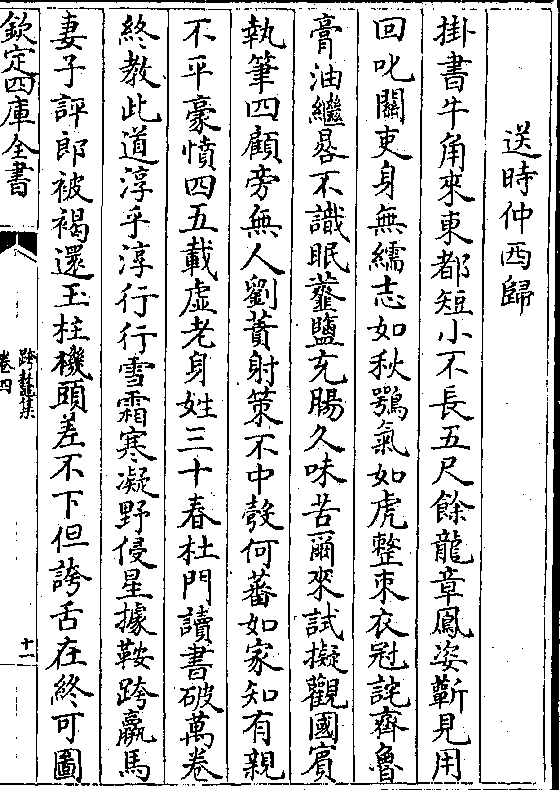 送時仲西歸
掛書牛角來東都短小不長五尺餘龍章鳳姿蘄見用
回叱關吏身無繻志如秋鶚氣如虎整束衣冠詫齊魯
膏油繼晷不識眠虀鹽充腸久味苦爾來試擬觀國賓
執筆四顧旁無人劉蕡射策不中彀何蕃如家知有親
不平豪憤四五載虛老身姓三十春杜門讀書破萬卷
終教此道淳乎淳行行雪霜寒凝野侵星據鞍跨羸馬
妻子評郎被褐還玉柱機頭差不下但誇舌在終可圖
欽定四庫全書
跨鼇集
卷四
十一